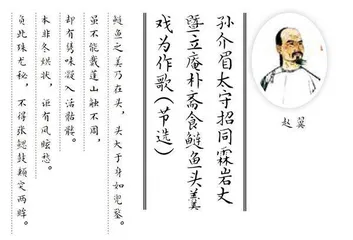 赵翼
孙介眉太守招同霖岩丈
暨立庵朴斋食鲢鱼头羹
戏为作歌(节选)
鲢鱼之美乃在头,头大于身如兜鍪。
虽不能戴蓬山触不周,
却有隽味凝入活骷髅。
本非冬烘状,讵有风眩愁。
负此殊尤秘,不得张鳃鼓颊定两眸。